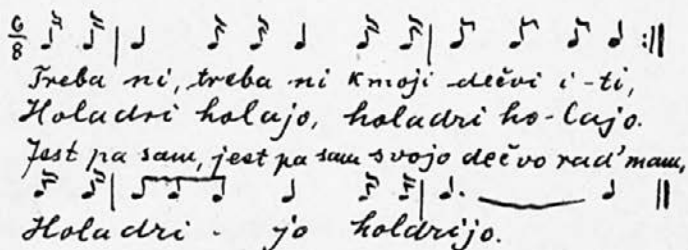 6/8
Treba ni, treba ni k moji dečvi i-ti,
Holadri holajo, holadri ho-lajo.
Jest pa sam, jest pa sam svojo dečvo rad' mam,
Holadri - jo holdrijo.